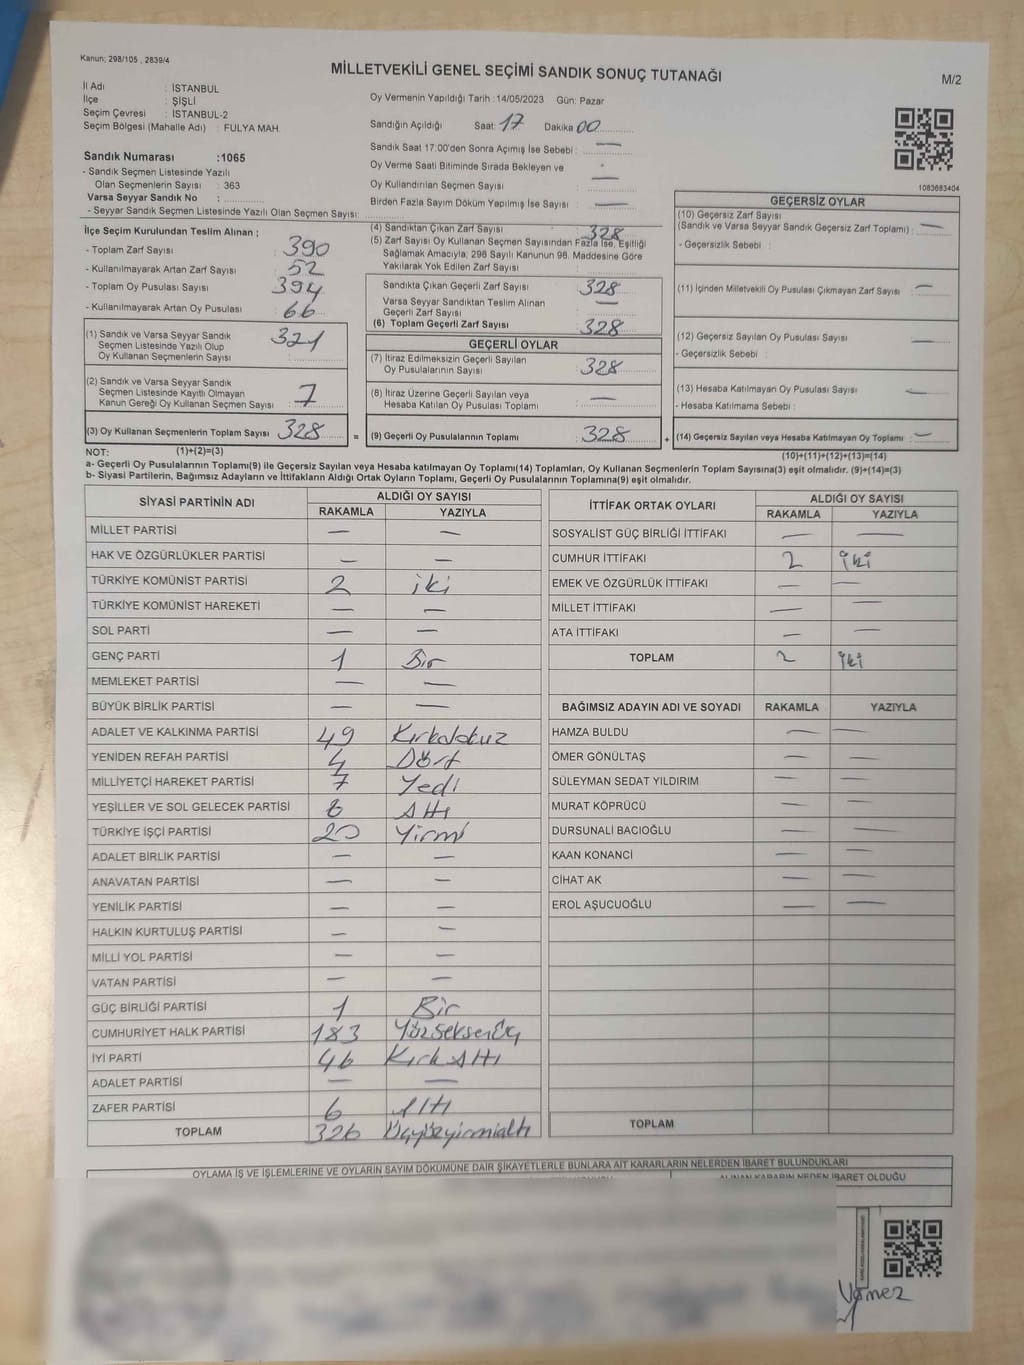 Kanun; 298/105 , 2839/4
MİLLETVEKİLİ GENEL SEÇİMİ SANDIK SONUÇ TUTANAĞI
M/2
İl Adı : İSTANBUL
İlçe : ŞİŞLİ
Seçim Çevresi : İSTANBUL-2
Seçim Bölgesi (Mahalle Adı) : FULYA MAH.
Oy Vermenin Yapıldığı Tarih :14/05/2023 Gün: Pazar
Sandığın Açıldığı Saat: 17 Dakika 00
Sandık Saat 17:00'den Sonra Açımış İse Sebebi : —
Oy Verme Saati Bitiminde Sırada Bekleyen ve
Oy Kullandırılan Seçmen Sayısı : —
Birden Fazla Sayım Döküm Yapılmış İse Sayısı : —
Sandık Numarası :1065
- Sandık Seçmen Listesinde Yazılı
Olan Seçmenlerin Sayısı : 363
Varsa Seyyar Sandık No :
- Seyyar Sandık Seçmen Listesinde Yazılı Olan Seçmen Sayısı:
1083683404
İlçe Seçim Kurulundan Teslim Alınan ;
- Toplam Zarf Sayısı : 390
- Kullanılmayarak Artan Zarf Sayısı : 52
- Toplam Oy Pusulası Sayısı : 394
- Kullanılmayarak Artan Oy Pusulası : 66
(1) Sandık ve Varsa Seyyar Sandık
Seçmen Listesinde Yazılı Olup
Oy Kullanan Seçmenlerin Sayısı : 321
(2) Sandık ve Varsa Seyyar Sandık
Seçmen Listesinde Kayıtlı Olmayan
Kanun Gereği Oy Kullanan Seçmen Sayısı : 7
(3) Oy Kullanan Seçmenlerin Toplam Sayısı : 328
(4) Sandıktan Çıkan Zarf Sayısı : 328
(5) Zarf Sayısı Oy Kullanan Seçmen Sayısından Fazla İse, Eşitliği
Sağlamak Amacıyla, 298 Sayılı Kanunun 98. Maddesine Göre
Yakılarak Yok Edilen Zarf Sayısı :
Sandıkta Çıkan Geçerli Zarf Sayısı : 328
Varsa Seyyar Sandıktan Teslim Alınan
Geçerli Zarf Sayısı : —
(6) Toplam Geçerli Zarf Sayısı : 328
GEÇERLİ OYLAR
(7) İtiraz Edilmeksizin Geçerli Sayılan
Oy Pusulalarının Sayısı : 328
(8) İtiraz Üzerine Geçerli Sayılan veya
Hesaba Katılan Oy Pusulası Toplamı : —
= (9) Geçerli Oy Pusulalarının Toplamı : 328
GEÇERSİZ OYLAR
(10) Geçersiz Zarf Sayısı
(Sandık ve Varsa Seyyar Sandık Geçersiz Zarf Toplamı) : —
- Geçersizlik Sebebi :
(11) İçinden Milletvekili Oy Pusulası Çıkmayan Zarf Sayısı : —
(12) Geçersiz Sayılan Oy Pusulası Sayısı : —
- Geçersizlik Sebebi :
(13) Hesaba Katılmayan Oy Pusulası Sayısı : —
- Hesaba Katılmama Sebebi :
+ (14) Geçersiz Sayılan veya Hesaba Katılmayan Oy Toplamı : —
NOT: (1)+(2)=(3) (10)+(11)+(12)+(13)=(14)
a- Geçerli Oy Pusulalarının Toplamı(9) ile Geçersiz Sayılan veya Hesaba katılmayan Oy Toplamı(14) Toplamları, Oy Kullanan Seçmenlerin Toplam Sayısına(3) eşit olmalıdır. (9)+(14)=(3)
b- Siyasi Partilerin, Bağımsız Adayların ve İttifakların Aldığı Ortak Oyların Toplamı, Geçerli Oy Pusulalarının Toplamına(9) eşit olmalıdır.
SİYASİ PARTİNİN ADI ALDIĞI OY SAYISI
RAKAMLA YAZIYLA
MİLLET PARTİSİ — —
HAK VE ÖZGÜRLÜKLER PARTİSİ — —
TÜRKİYE KOMÜNİST PARTİSİ 2 iki
TÜRKİYE KOMÜNİST HAREKETİ — —
SOL PARTİ — —
GENÇ PARTİ 1 Bir
MEMLEKET PARTİSİ — —
BÜYÜK BİRLİK PARTİSİ — —
ADALET VE KALKINMA PARTİSİ 49 Kırkdokuz
YENİDEN REFAH PARTİSİ 4 Dört
MİLLİYETÇİ HAREKET PARTİSİ 7 Yedi
YEŞİLLER VE SOL GELECEK PARTİSİ 6 Altı
TÜRKİYE İŞÇİ PARTİSİ 20 Yirmi
ADALET BİRLİK PARTİSİ — —
ANAVATAN PARTİSİ — —
YENİLİK PARTİSİ — —
HALKIN KURTULUŞ PARTİSİ — —
MİLLİ YOL PARTİSİ — —
VATAN PARTİSİ — —
GÜÇ BİRLİĞİ PARTİSİ 1 Bir
CUMHURİYET HALK PARTİSİ 183 YüzseksenÜç
İYİ PARTİ 46 Kırk Altı
ADALET PARTİSİ — —
ZAFER PARTİSİ 6 Altı
TOPLAM 326 Üçyüzyirmialtı
İTTİFAK ORTAK OYLARI ALDIĞI OY SAYISI
RAKAMLA YAZIYLA
SOSYALİST GÜÇ BİRLİĞİ İTTİFAKI — —
CUMHUR İTTİFAKI 2 iki
EMEK VE ÖZGÜRLÜK İTTİFAKI — —
MİLLET İTTİFAKI — —
ATA İTTİFAKI — —
TOPLAM 2 iki
BAĞIMSIZ ADAYIN ADI VE SOYADI RAKAMLA YAZIYLA
HAMZA BULDU — —
ÖMER GÖNÜLTAŞ — —
SÜLEYMAN SEDAT YILDIRIM — —
MURAT KÖPRÜCÜ — —
DURSUNALİ BACIOĞLU — —
KAAN KONANCİ — —
CİHAT AK — —
EROL AŞUCUOĞLU — —
TOPLAM
OYLAMA İŞ VE İŞLEMLERİNE VE OYLARIN SAYIM DÖKÜMÜNE DAİR ŞİKAYETLERLE BUNLARA AİT KARARLARIN NELERDEN İBARET BULUNDUKLARI
ALINAN KARARIN NEDEN İBARET OLDUĞU